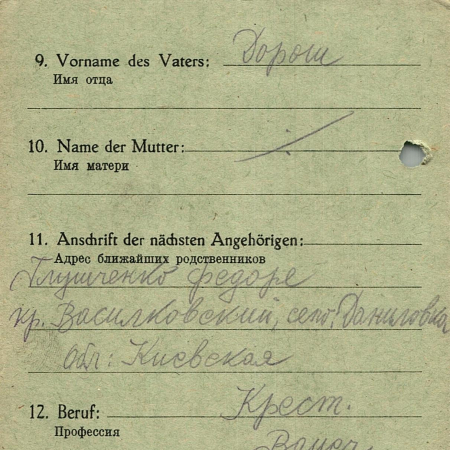 9. Vorname des Vaters: Дорош
Имя отца
10. Name der Mutter:
Имя матери
11. Anschrift der nächsten Angehörigen:
Адрес ближайших родственников
Глушченко Федоре
кр. Василковский, село: Даниловка
Обл: Киевская
12. Beruf: Крест.
Профессия